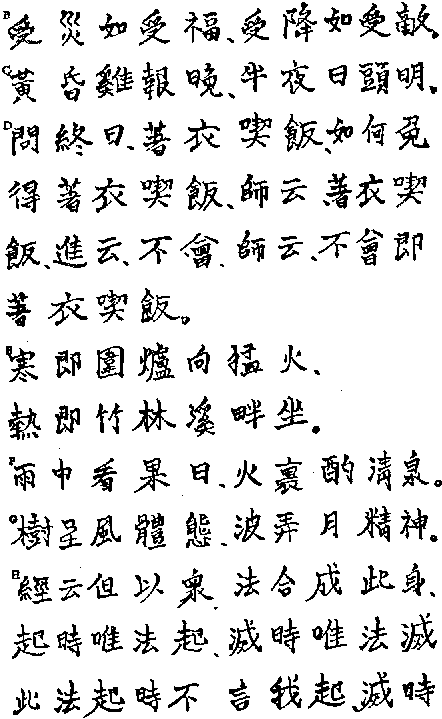 B受災如受福、受降如受敵。
C黃昏雞報曉、半夜日頭明。
D問終日、著衣喫飯、如何免
得著衣喫飯、師云、著衣喫
飯、進云、不會、師云、不會即
著衣喫飯。
E寒即圍爐向猛火、
熱即竹林溪畔坐。
F雨中看果日、火裏酌清泉。
G樹呈風體態、波弄月精神。
H經云但以衆法合成此身、
起時唯法起、滅時唯法滅
此法起時不言我起、滅時